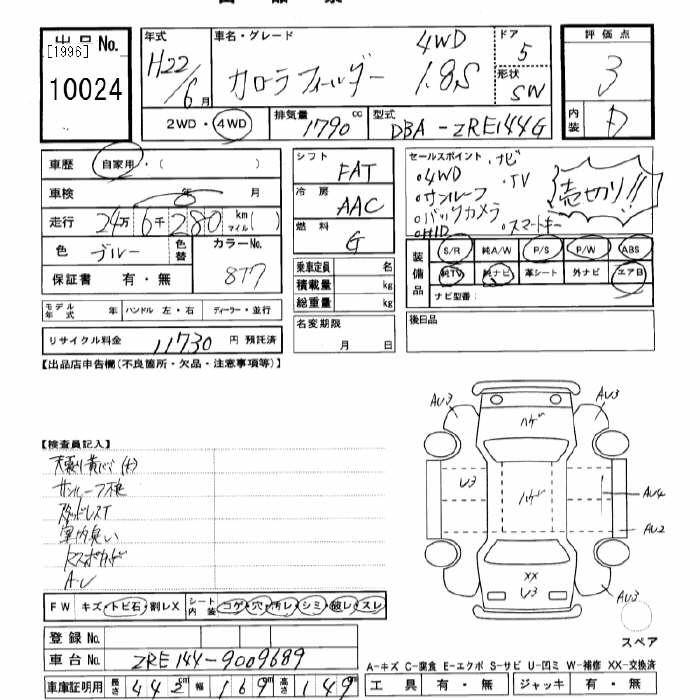 出品No. [1996] 10024
年式 H22/6月
車名・グレード カローラフィールダー 4WD 1.8S
ドア 5
形状 SW
評価点 3
内装 D
2WD・4WD
排気量 1790 cc
型式 DBA-ZRE144G
車歴 自家用・( )
車検 年 月
走行 24万6千280 km マイル( )
色 ブルー 色替 カラーNo. 8T7
保証書 有・無
モデル年式 年 ハンドル 左・右 ディーラー・並行
リサイクル料金 11730 円 預託済
シフト FAT
冷房 AAC
燃料 G
乗車定員 名
積載量 kg
総重量 kg
名変期限 月 日
セールスポイント ・ナビ
・4WD ・TV
・サンルーフ
・バックカメラ
・HID ・スマートキー
売切り!!
装備品 S/R 純A/W P/S P/W ABS
純TV 純ナビ 革シート 外ナビ エアB
ナビ型番:
後日品
【出品店申告欄(不良箇所・欠品・注意事項等)】
【検査員記入】
サンルーフ
車内臭い
AU
FW キズ・トビ石・割レX シート内装 コゲ・穴・汚レ・シミ・破レ・スレ
登録No.
車台No. ZRE144-9009689
車庫証明用 長さ 442 幅 169 高さ 149
AU3
AU3
ハゲ
U3
ハゲ
AU4
AU2
XX
U3
AU3
スペア
A-キズ C-腐食 E-エクボ S-サビ U-凹ミ W-補修 XX-交換済
工具 有・無 ジャッキ 有・無